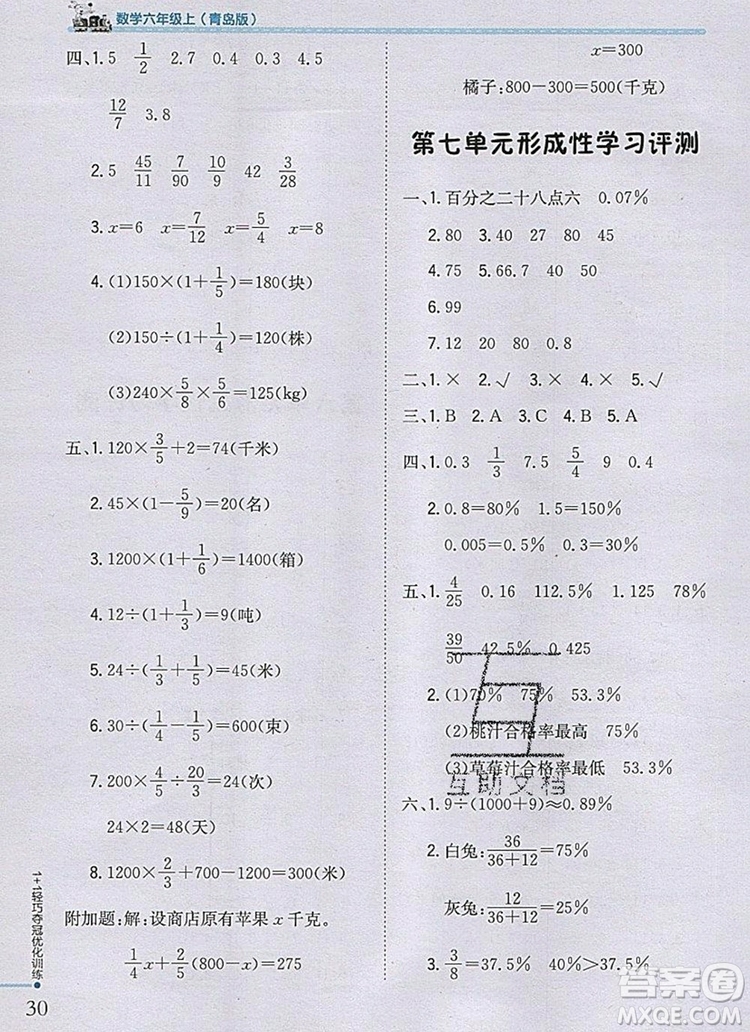 数学六年级上（青岛版）
四、1.5 1/2 2.7 0.4 0.3 4.5
12/7 3.8
2.5 45/11 7/90 10/9 2/7 3/28
3.x=6 x=7/12 x=5/4 x=8
4.(1)150×(1+1/5)=180(块)
(2)150÷(1+1/4)=120(株)
(3)240×5/8×5/6=125(kg)
五、1.120×3/5+2=74(千米)
2.45×(1-5/9)=20(名)
3.1200×(1+1/6)=1400(箱)
4.12÷(1+1/3)=9(吨)
5.24÷(1/3+1/5)=45(米)
6.30÷(1/4-1/5)=600(束)
7.200×4/5÷20/3=24(次)
24×2=48(天)
8.1200×2/3+700-1200=300(米)
附加题:解:设商店原有苹果 x 千克。
1/4x+2/5(800-x)=275
1+1轻巧夺冠优化训练
30
x=300
橘子:800-300=500(千克)
第七单元形成性学习评测
一、1.百分之二十八点六 0.07%
2.80 3.40 27 80 45
4.75 5.16 40 80
6.99
7.12 20 80 0.8
二、1.× 2.√ 3.× 4.× 5.√
三、1.B 2.A 3.C 4.B 5.A
四、1.0.3 1/3 7.5 5/4 9 0.4
2.0.8=80% 1.5=150%
0.005=0.5% 1/5=20%
五、1.4/25 0.16 112.5% 1.125 78%
39/50 42.5% 0.425
2.(1)70% 75% 53.3%
(2)桃汁合格率最高 75%
(3)草莓汁合格率最低 53.3%
互助文档
六、1.9÷(1000+9)≈0.9%
2.白兔:36/(36+12)=75%
灰兔:12/(36+12)=25%
3.3/8=37.5% 40%>37.5%
答案圈
MXQE.COM